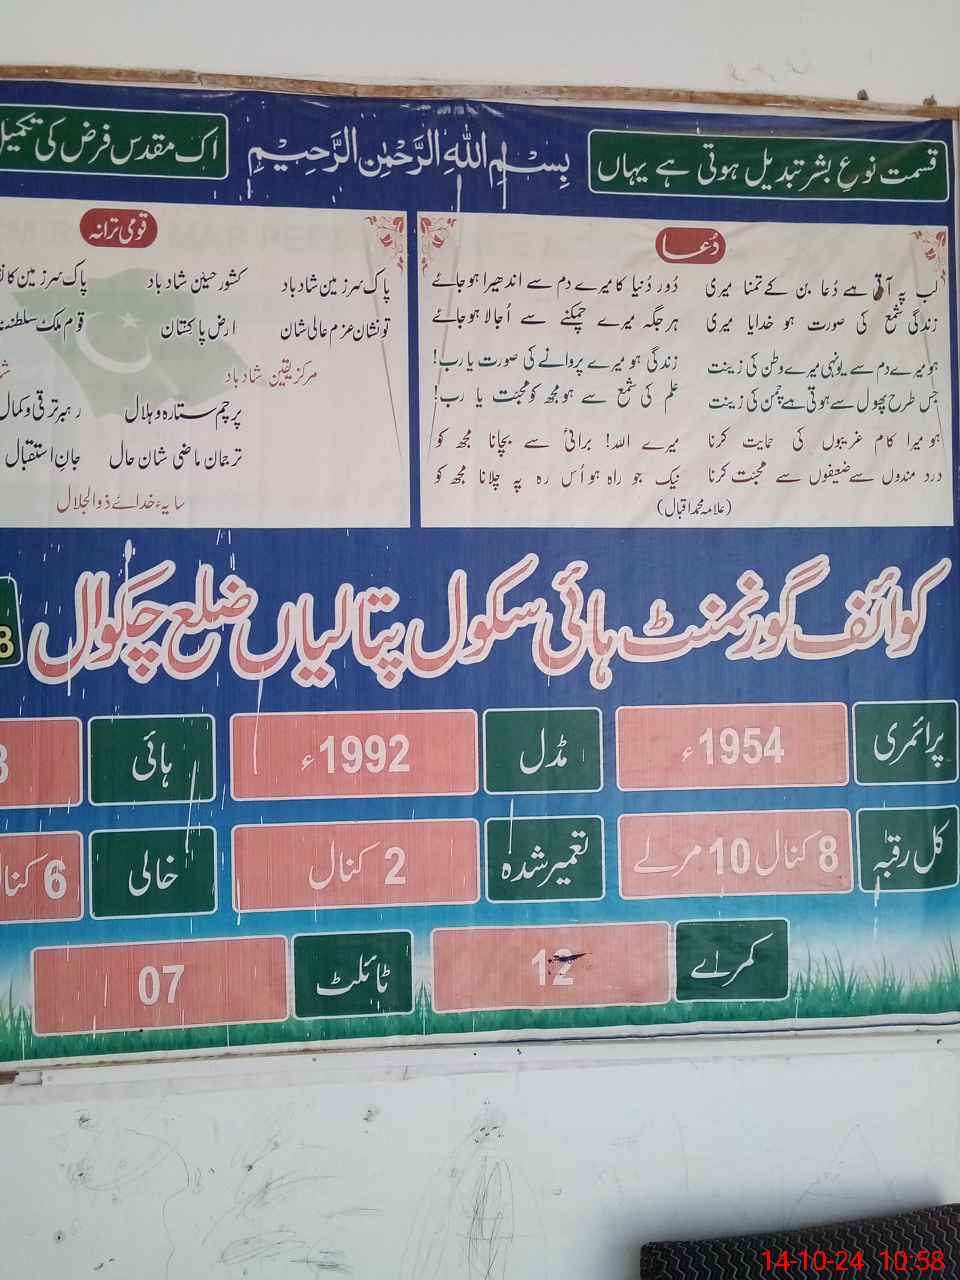 قسمت نوعِ بشر تبدیل ہوتی ہے یہاں
بِسْمِ اللهِ الرَّحْمٰنِ الرَّحِيْمِ
اک مقدس فرض کی تکمیل
دُعا
لب پہ آتی ہے دُعا بن کے تمنا میری دُور دُنیا کا میرے دم سے اندھیرا ہو جائے
زندگی شمع کی صورت ہو خدایا میری ہر جگہ میرے چمکنے سے اُجالا ہو جائے
ہو میرے دم سے یونہی میرے وطن کی زینت زندگی ہو میرے پروانے کی صورت یا رب!
جس طرح پھول سے ہوتی ہے چمن کی زینت علم کی شمع سے ہو مجھ کو محبت یا رب!
ہو میرا کام غریبوں کی حمایت کرنا میرے اللہ! برائی سے بچانا مجھ کو
درد مندوں سے ضعیفوں سے محبت کرنا نیک جو راہ ہو اُس رہ پہ چلانا مجھ کو
(علامہ محمد اقبال)
قومی ترانہ
پاک سرزمین شاد باد کشور حسین شاد باد
تو نشان عزم عالی شان ارض پاکستان
مرکز یقین شاد باد
پاک سرزمین کا
قوم ملک سلطنت
پرچم ستارہ و ہلال رہبر ترقی و کمال
ترجمان ماضی شان حال جانِ استقبال
سایہء خدائے ذوالجلال
کوائف گورنمنٹ ہائی سکول پتالیاں ضلع چکوال
8
پرائمری 1954ء مڈل 1992ء ہائی
کل رقبہ 8 کنال 10 مرلے تعمیر شدہ 2 کنال خالی 6
کمرے 12 ٹائلٹ 07
14-10-24 10:58